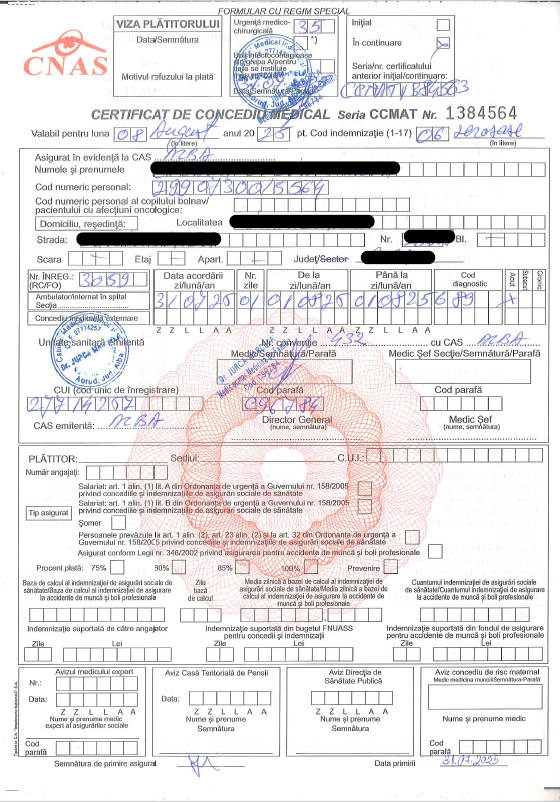 FORMULAR CU REGIM SPECIAL
CNAS
VIZA PLĂTITORULUI
Data/Semnătura
Motivul refuzului la plată
Urgență medico-chirurgicală 35
*)
Data/Semnătura/Parafa
Inițial
În continuare
Seria/nr. certificatului anterior inițial/continuare:
CERTIFICAT DE CONCEDIU MEDICAL Seria CCMAT Nr. 1384564
Valabil pentru luna 08 August anul 2025 pt. Cod indemnizație (1-17) 06
(în litere) (în litere)
Asigurat în evidență la CAS
Numele și prenumele
Cod numeric personal:
Cod numeric personal al copilului bolnav/
pacientului cu afecțiuni oncologice:
Domiciliu, reședință: Localitatea
Strada: Nr. Bl.
Scara Etaj Apart. Județ/Sector
Nr. ÎNREG.: (RC/FO) 3059
Data acordării zi/lună/an Nr. zile De la zi/lună/an Până la zi/lună/an Cod diagnostic Acut Subacut Cronic
Ambulator/internat în spital
Secția
310725 01 010825 010825
Concediu medical la externare
Z Z L L A A Z Z L L A A Z Z L L A A
Unitate sanitară emitentă Nr. convenție 432 cu CAS
Medic/Semnătură/Parafă Medic Șef Secție/Semnătură/Parafă
CUI (cod unic de înregistrare) Cod parafă Cod parafă
27714257
CAS emitentă: Director General Medic Șef
(nume, semnătura) (nume, semnătura)
PLĂTITOR: Sediul: C.U.I.:
Număr angajați:
Tip asigurat
Salariat: art. 1 alin. (1) lit. A din Ordonanța de urgență a Guvernului nr. 158/2005
privind concediile și indemnizațiile de asigurări sociale de sănătate
Salariat: art. 1 alin. (1) lit. B din Ordonanța de urgență a Guvernului nr. 158/2005
privind concediile și indemnizațiile de asigurări sociale de sănătate
Șomer
Persoanele prevăzute la art. 1 alin. (2), art. 23 alin. (2) și la art. 32 din Ordonanța de urgență a
Guvernului nr. 158/2005 privind concediile și indemnizațiile de asigurări sociale de sănătate
Asigurat conform Legii nr. 346/2002 privind asigurarea pentru accidente de muncă și boli profesionale
Procent plată: 75% 80% 85% 100% Prevenire
Baza de calcul al indemnizației de asigurări sociale de
sănătate/Baza de calcul al indemnizației de asigurare
la accidente de muncă și boli profesionale
Zile bază de calcul
Media zilnică a bazei de calcul al indemnizației de
asigurări sociale de sănătate/Media zilnică a bazei de
calcul al indemnizației de asigurare la accidente de
muncă și boli profesionale
Cuantumul indemnizației de asigurări sociale
de sănătate/Cuantumul indemnizației de asigurare
la accidente de muncă și boli profesionale
Indemnizație suportată de către angajator
Indemnizație suportată din bugetul FNUASS
pentru concedii și indemnizații
Indemnizație suportată din fondul de asigurare
pentru accidente de muncă și boli profesionale
Zile Lei Zile Lei Zile Lei
Avizul medicului expert
Nr.:
Data:
Z Z L L A A
Nume și prenume medic
expert al asigurărilor sociale
Cod parafă
Aviz Casă Teritorială de Pensii
Data:
Z Z L L A A
Nume și prenume
Semnătura
Aviz Direcția de
Sănătate Publică
Z Z L L A A
Nume și prenume
Semnătura
Aviz concediu de risc maternal
Medic medicina muncii/Semnătura-Parafă
Nume și prenume medic
Cod parafă
Semnătura de primire asigurat Data primirii 31.07.2025